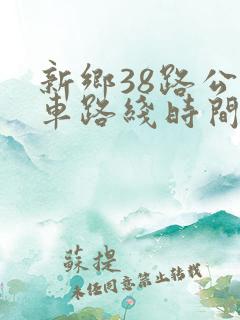 新鄉38路公
車路綫時間
蘇提
未经同意禁止转载